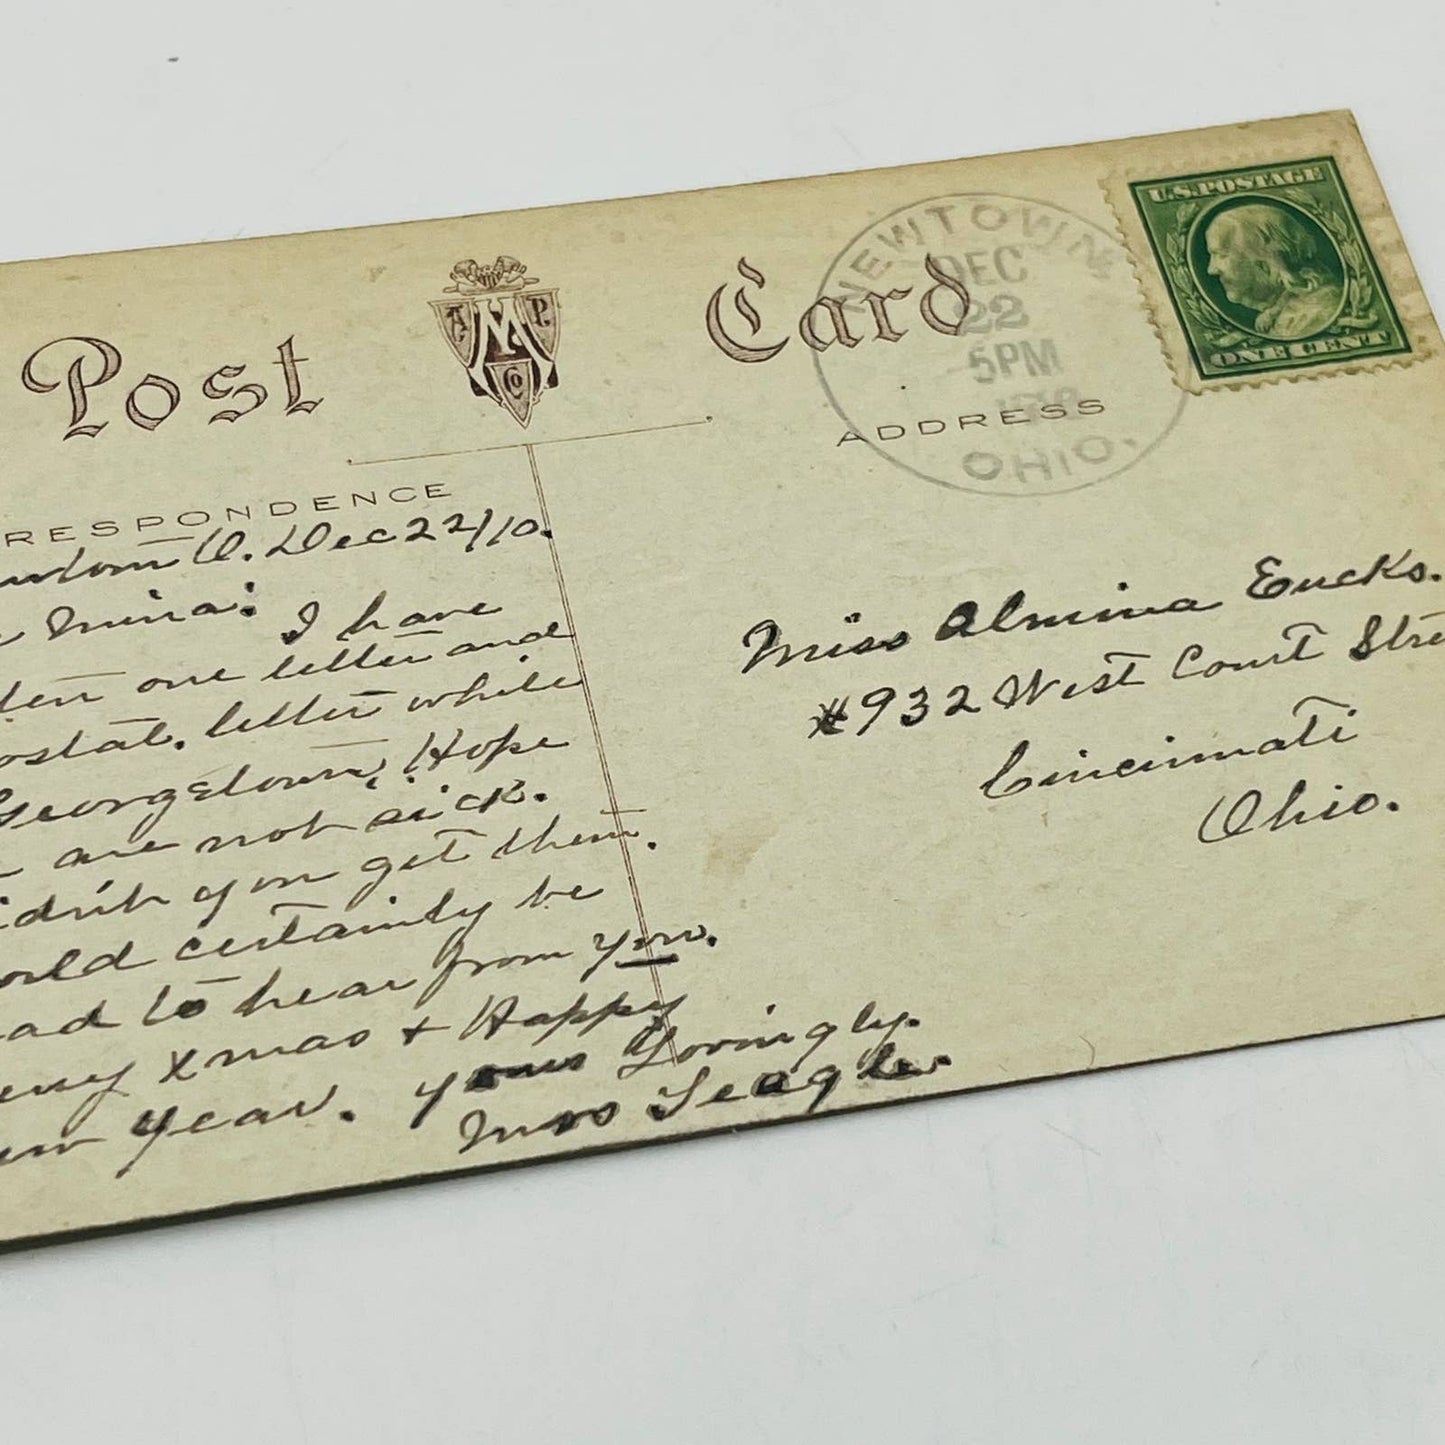 Post Card
A M P
Co
NEWTOWN
DEC
22
5PM
OHIO.
U.S. POSTAGE
ONE CENT
RESPONDENCE
ADDRESS
O. Dec 22/10.
Mina: I have
ten one letter and
ostal. letter while
Georgetown, Hope
are not sick.
idn't you get them.
ould certainly be
ad to hear from you.
erry Xmas + Happy
ew Year. Yours Lovingly.
Mrs Seagle.
Miss Almina Eucks.
#932 West Court Stre
Cincinnati
Ohio.